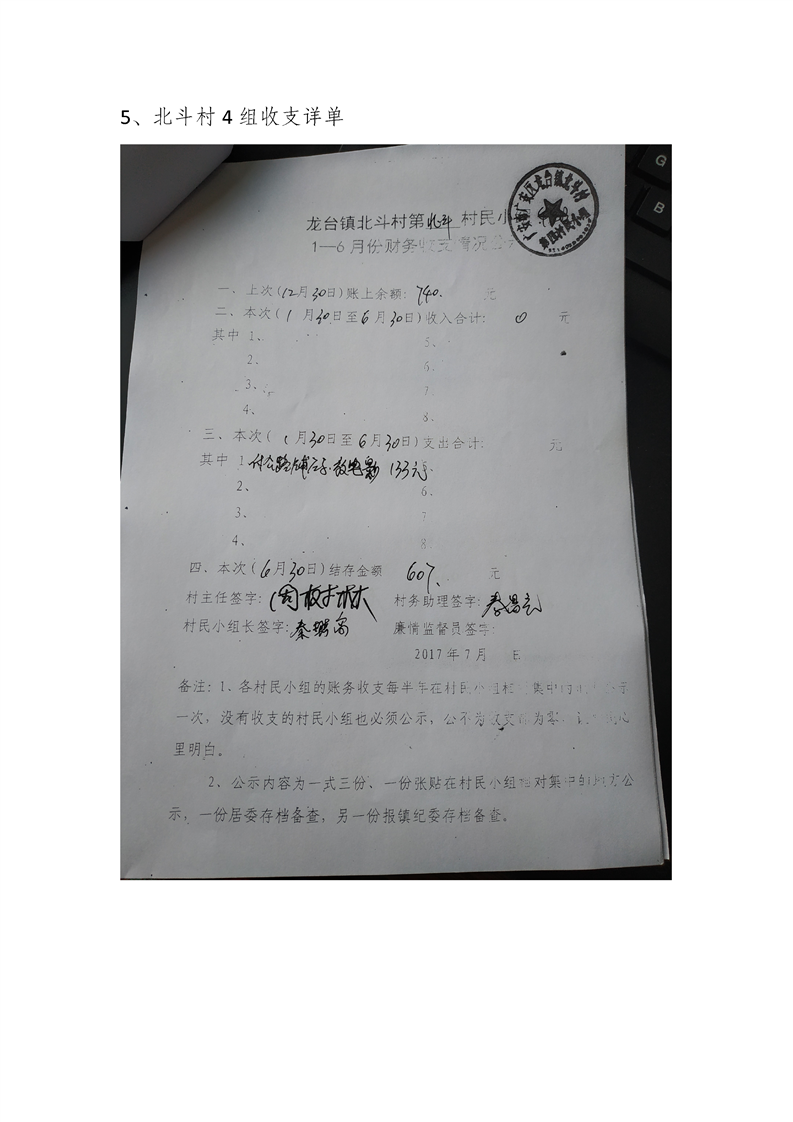 5、北斗村 4 组收支详单
龙台镇北斗村第北斗村民小
1—6月份财务收支情况公示
一、上次(12月30日)账上余额: 740. 元
二、本次(1月30日至6月30日)收入合计: 0 元
其中 1、 5、
2、 6、
3、 7、
4、 8、
三、本次(1月30日至6月30日)支出合计: 元
其中 1 付公路铺 放电影 133元
2、 6、
3、 7
4、 8、
四、本次(6月30日)结存金额 607. 元
村主任签字: 周 村务助理签字: 秦
村民小组长签字: 秦 廉情监督员签字:
2017年7月 日
备注: 1、各村民小组的账务收支每半年在村民小组相对集中的地方公示
一次,没有收支的村民小组也必须公示,公示为收支为零,心
里明白。
2、公示内容为一式三份、一份张贴在村民小组相对集中的地方公
示,一份居委存档备查,另一份报镇纪委存档备查。
广安市广安区龙台镇北斗村
第四村民小组